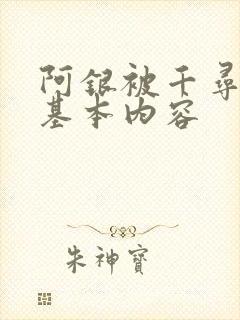 阿银被千寻
基本内容
朱神宝